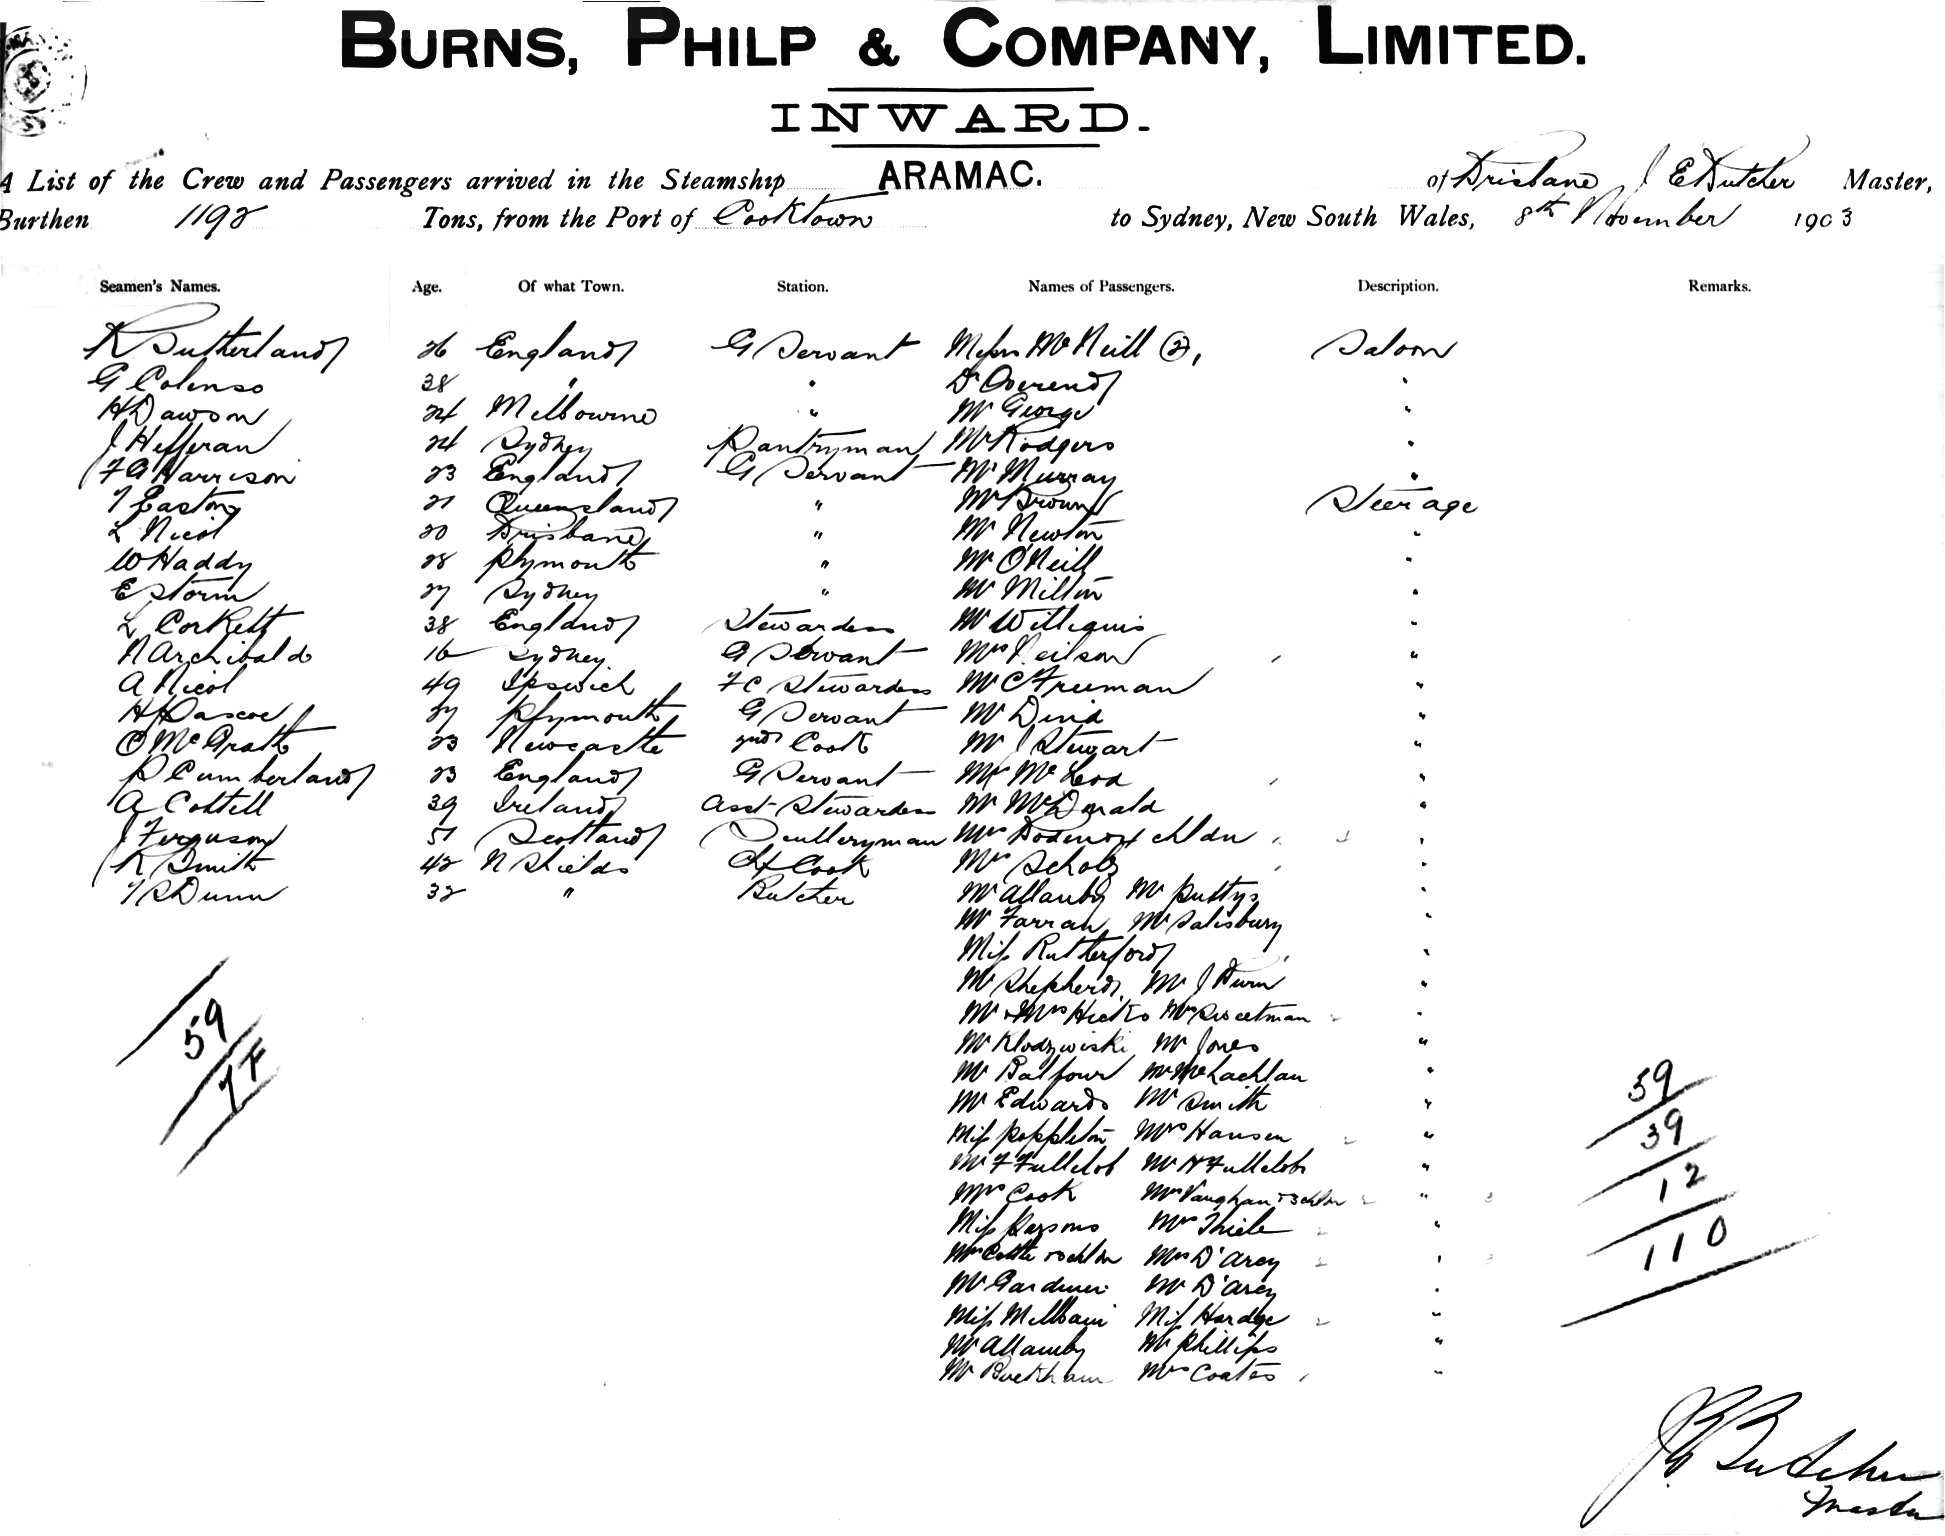 BURNS, PHILP & COMPANY, LIMITED.
INWARD.
A List of the Crew and Passengers arrived in the Steamship ARAMAC. of Brisbane J E Butcher Master,
Burthen 1192 Tons, from the Port of Cooktown to Sydney, New South Wales, 8th November 1903
Seamen's Names. Age. Of what Town. Station. Names of Passengers. Description. Remarks.
R Sutherland 26 England G Servant Messrs McNeill (2), Saloon
G Colenso 38 " " Dr Overend "
H Dawson 24 Melbourne " Mr George "
J Hefferan 24 Sydney Pantryman Mr Rodgers "
F G Harrison 23 England G Servant Mr Murray "
T Easton 21 Queensland " Mr Brown Steerage
L Nicol 20 Brisbane " Mr Newton "
W Haddy 28 Plymouth " Mr O'Neill "
E Storm 27 Sydney " Mr Milton "
L Corkett 38 England Stewardess Mr Williams "
N Archibald 16 Sydney. G Servant Mrs Neilson "
A Nicol 49 Ipswich F C Stewardess Mr C Freeman "
H Pascoe 27 Plymouth G Servant Mr "
O McGrath 23 Newcastle 2nd Cook Mr J Stewart "
P Cumberland 23 England G Servant Mrs McLeod "
A Cottell 39 Ireland Asst Stewardess Mr McDonald "
J Ferguson 51 Scotland Sculleryman Mrs chldn "
R Smith 42 N Shields Chf Cook Mrs Scholz "
T R Dunn 32 " Butcher Mr Allanby Mr Puttys "
Mr Farran Mr Salisbury "
Miss Rutherford "
Mr Shepherd, Mr J Dunn "
Mr & Mrs Hicks Mrs Sweetman "
Mr Klodzwiski Mr Jones "
Mr Balfour Mr McLachlan "
59 Mr Edwards Mr Smith " 59
TF Miss Poppleton Mrs Hansen " 39
Mr F Fullelob Mr H Fullelob "
Mrs Cook Mrs Vaughan & 3 chldn " 12
Miss Parsons Mrs Thiele "
Mrs Cottle & chldn Mrs D'Arcy " 110
Mr Gardiner Mr D'Arcy "
Miss Millbain Miss Hardge "
Mr Allamby Mr Phillips "
Mr Buckham Mrs Coates "
J E Butcher
Master